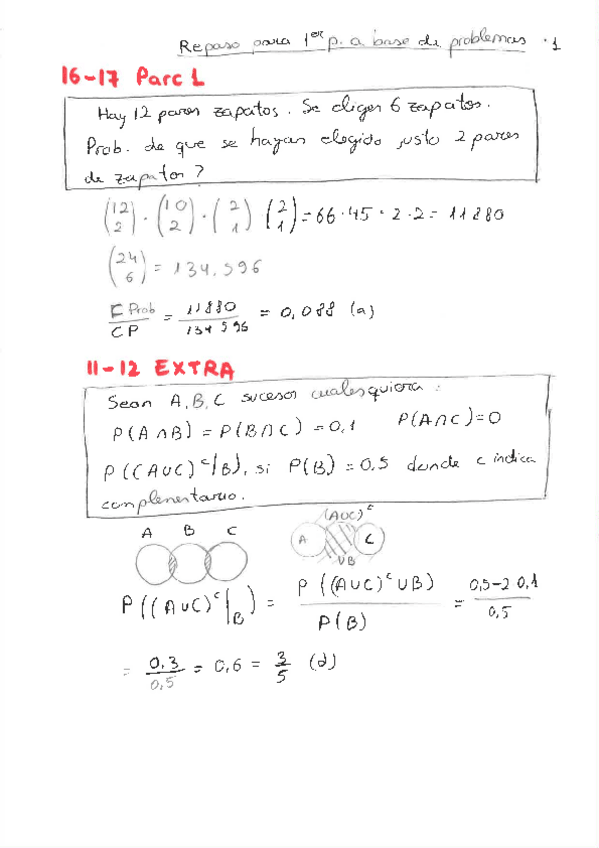 Repaso para 1er p. a base de problemas · 1
16-17 Parc 1
Hay 12 pares zapatos. Se eligen 6 zapatos.
Prob. de que se hayan elegido justo 2 pares
de zapatos?
(12 2) · (10 2) · (2 1) (2 1) = 66 · 45 · 2 · 2 = 11880
(24 6) = 134.596
C Prob / CP = 11880 / 134596 = 0,088 (a)
11-12 EXTRA
Sean A, B, C sucesos cualesquiera:
P(A∩B) = P(B∩C) = 0,1 P(A∩C)=0
P((AUC)ᶜ|B), si P(B) = 0.5 donde c indica
complementario.
A B C (AUC)ᶜ
A C
UB
P((AUC)ᶜ|B) = P((AUC)ᶜ UB) / P(B) = 0,5-2 0,1 / 0,5
= 0,3 / 0,5 = 0,6 = 3/5 (d)